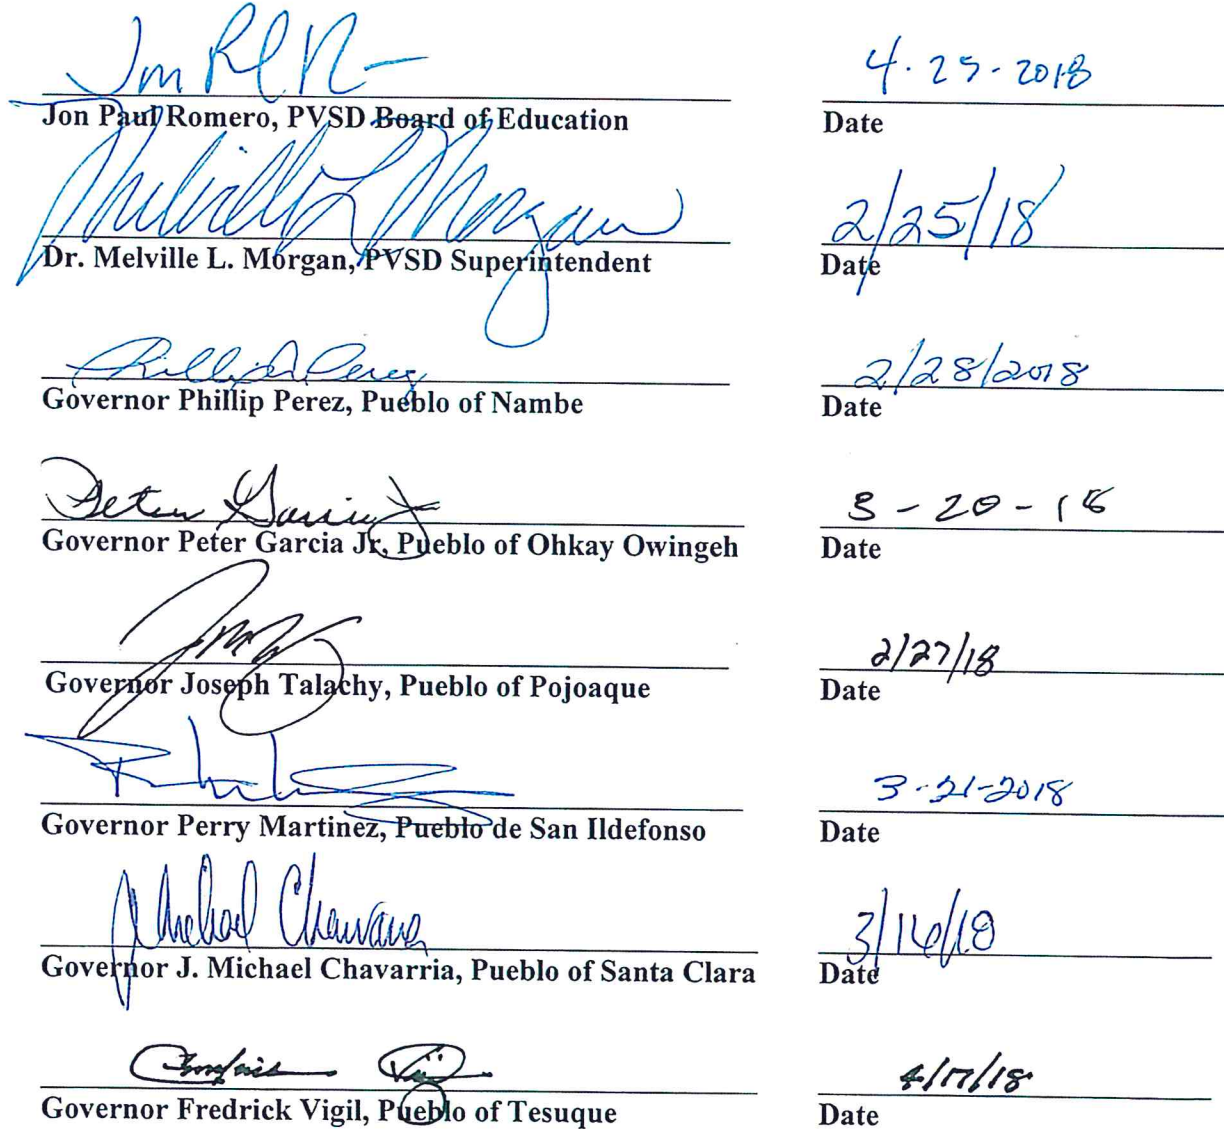 Jon Paul R 4-25-2018
Jon Paul Romero, PVSD Board of Education Date
Melville L Morgan 2/25/18
Dr. Melville L. Morgan, PVSD Superintendent Date
Phillip A. Perez 2/28/2018
Governor Phillip Perez, Pueblo of Nambe Date
Peter Garcia Jr 3-20-18
Governor Peter Garcia Jr, Pueblo of Ohkay Owingeh Date
2/27/18
Governor Joseph Talachy, Pueblo of Pojoaque Date
3-21-2018
Governor Perry Martinez, Pueblo de San Ildefonso Date
J. Michael Chavarria 3/16/18
Governor J. Michael Chavarria, Pueblo of Santa Clara Date
4/17/18
Governor Fredrick Vigil, Pueblo of Tesuque Date